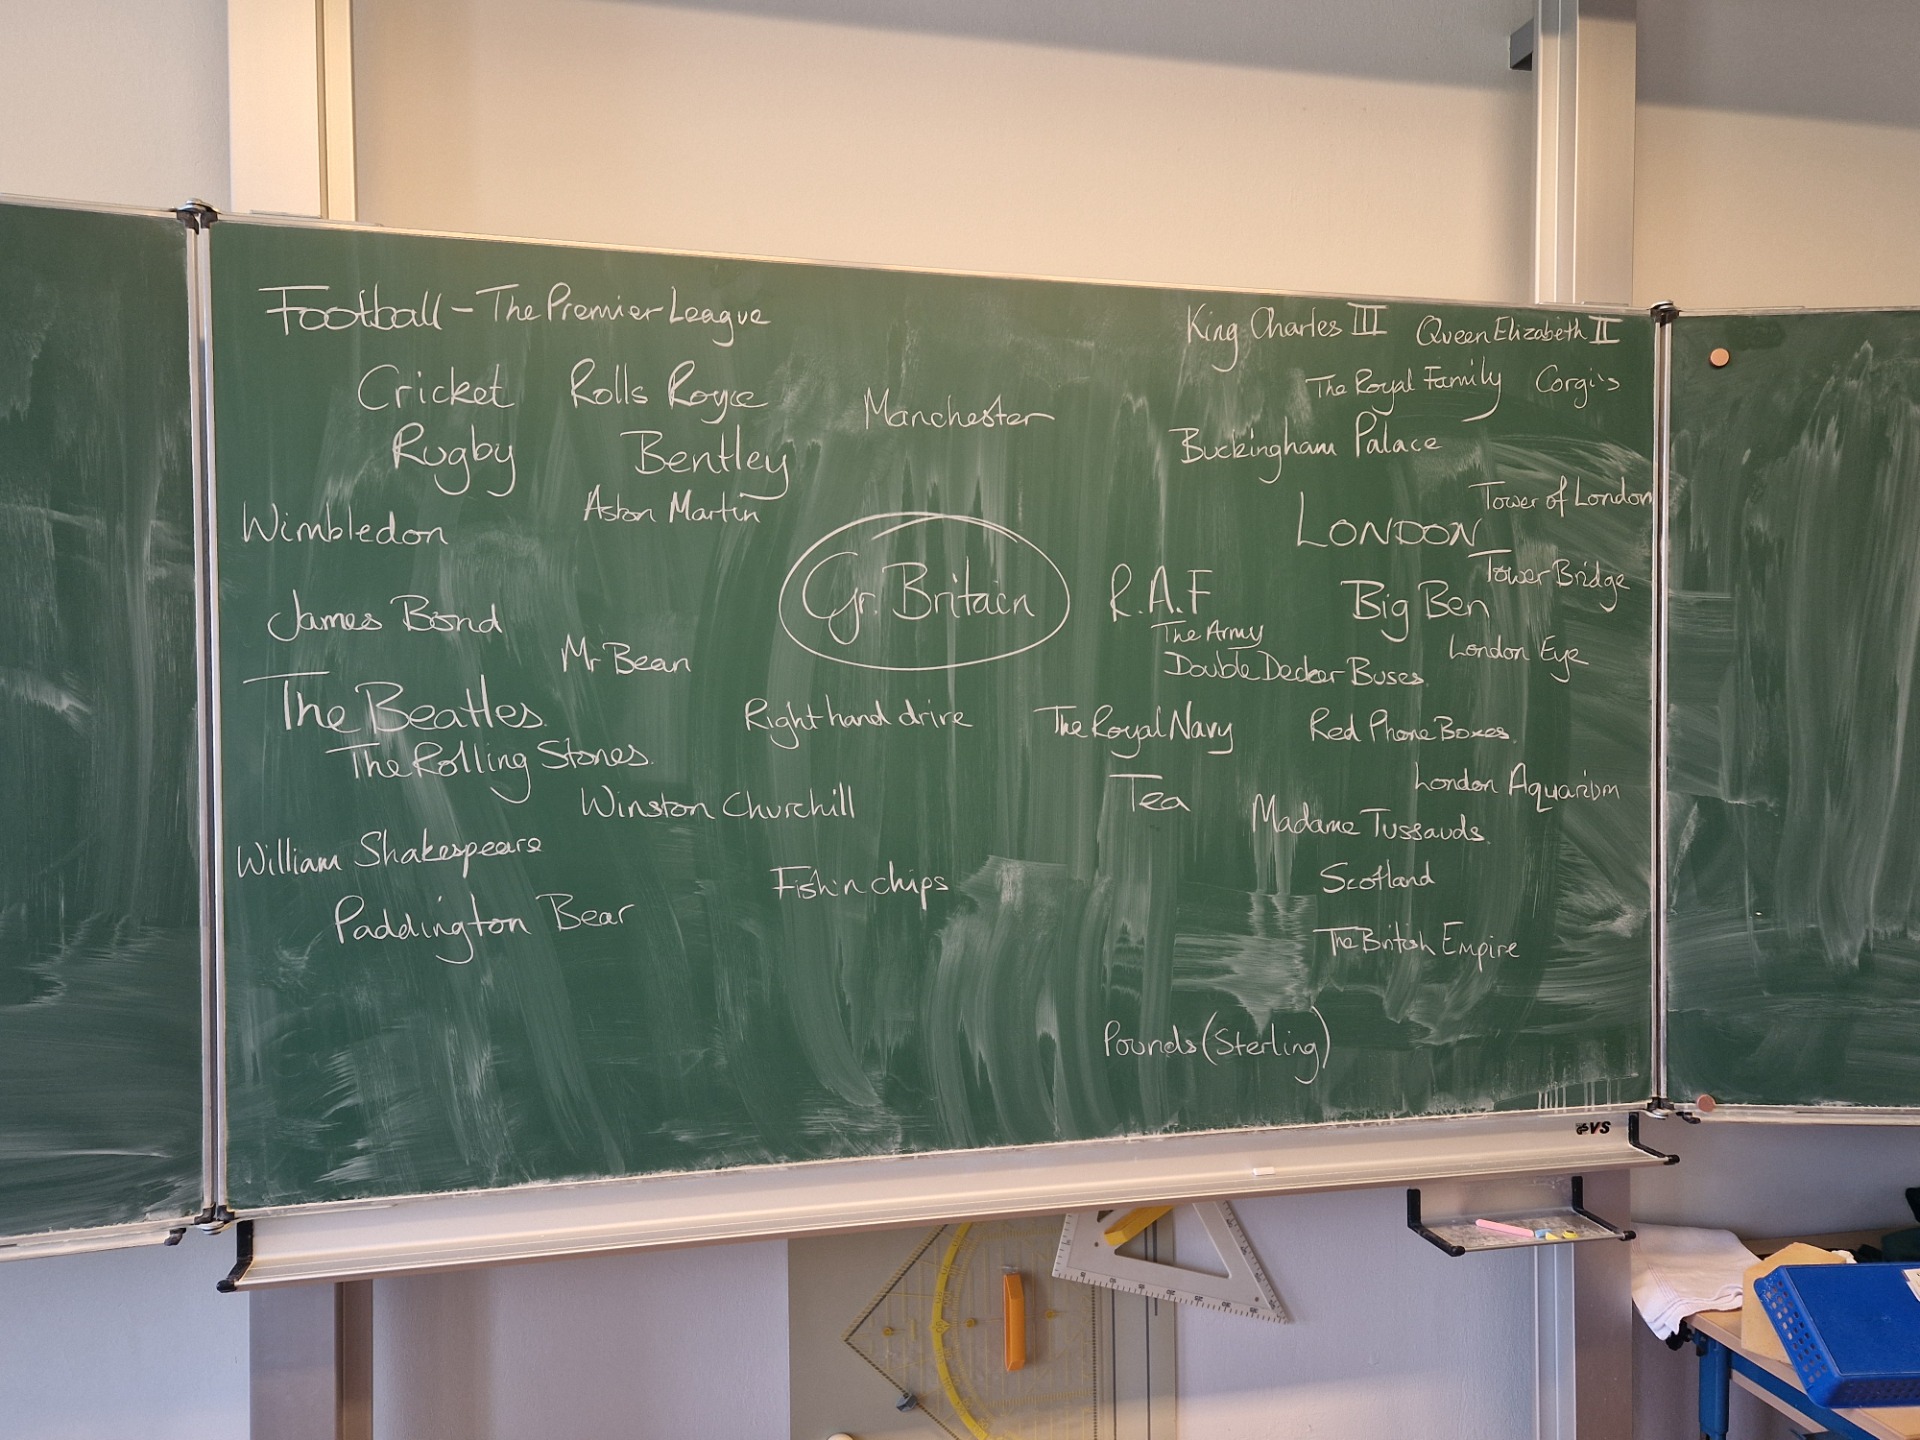 Football - The Premier League
King Charles III
Queen Elizabeth II
Cricket
Rolls Royce
Manchester
The Royal Family
Corgi's
Rugby
Bentley
Buckingham Palace
Wimbledon
Aston Martin
LONDON
Tower of London
Gr. Britain
R.A.F
Big Ben
Tower Bridge
James Bond
Mr Bean
The Army
London Eye
Double Decker Buses
The Beatles
Right hand drive
The Royal Navy
Red Phone Boxes.
The Rolling Stones.
Winston Churchill
Tea
London Aquarium
Madame Tussauds.
William Shakespeare
Fish'n chips
Scotland
Paddington Bear
The British Empire
Pounds (Sterling)
VS